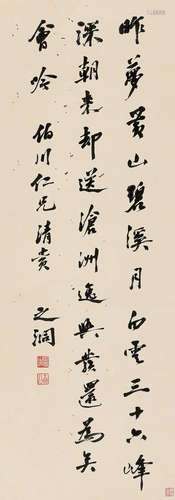 昨夢黃山碧溪月白雲三十六峰
深朝來却送滄洲逸興發還為吳
會吟 伯川仁兄清賞